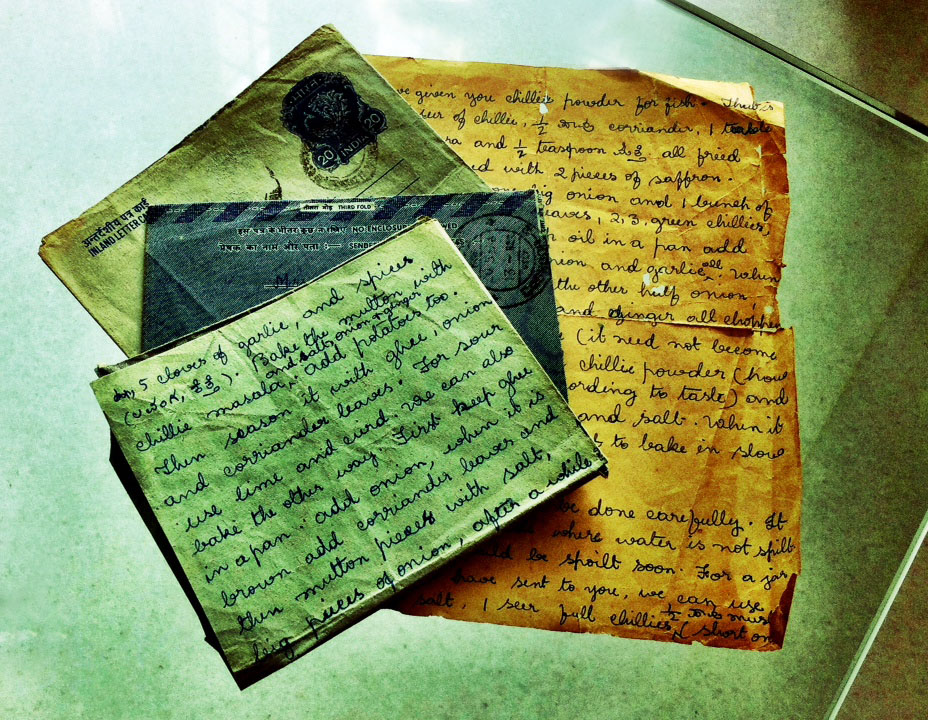 20
INDIA
अन्तर्देशीय पत्र कार्ड
INLAND LETTER CA
तीसरा मोड़ THIRD FOLD
इस पत्र के भीतर कुछ न रखिए NO ENCLOSU ED
प्रेषक का नाम और पता :— SENDE
M
5 cloves of garlic, and spices
Bake the mutton with
and salt, onion, ginger
chillie masala, add potatoes too.
Then season it with ghee onion
and corriander leaves. For sour
use lime and curd. We can also
bake the other way. First keep ghee
in a pan add onion, when it is
brown add corriander leaves and
then mutton pieces with salt,
big pieces of onion, after a while
ve given you chillie powder for fish. This is
seer of chillie, ½ corriander, 1 teaspoon
ra and ½ teaspoon all fried
ed with 2 pieces of saffron.
one big onion and 1 bunch of
eaves, 2, 3, green chillies,
oil in a pan add
nion and garlic, all. When
the other half onion,
and ginger all chopped
(it need not become
chillie powder (how
ording to taste) and
and salt. When it
to bake in slow
be done carefully. It
where water is not spilt
ld be spoilt soon. For a jar
have sent to you, we can use
½ must
salt, 1 seer full chillies, (short on